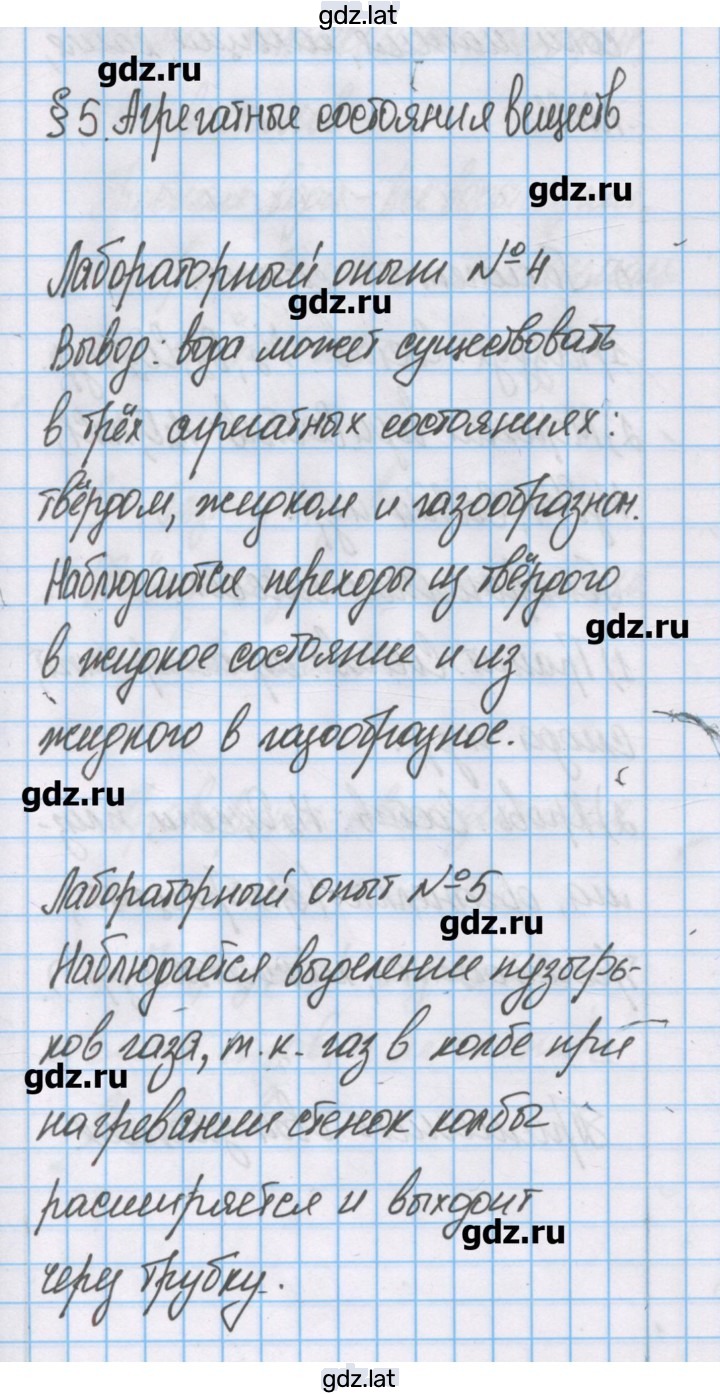 gdz.lat
gdz.ru
§ 5. Агрегатные состояния веществ
gdz.ru
Лабораторный опыт №4
gdz.ru
Вывод: вода может существовать
в трёх агрегатных состояниях:
твёрдом, жидком и газообразном.
Наблюдаются переходы из твёрдого
gdz.ru
в жидкое состояние и из
жидкого в газообразное.
gdz.ru
Лабораторный опыт №5
gdz.ru
Наблюдается выделение пузырь-
ков газа, т.к. газ в колбе при
gdz.ru
нагревании стенок колбы
расширяется и выхдоит
gdz.ru
через трубку.
gdz.lat